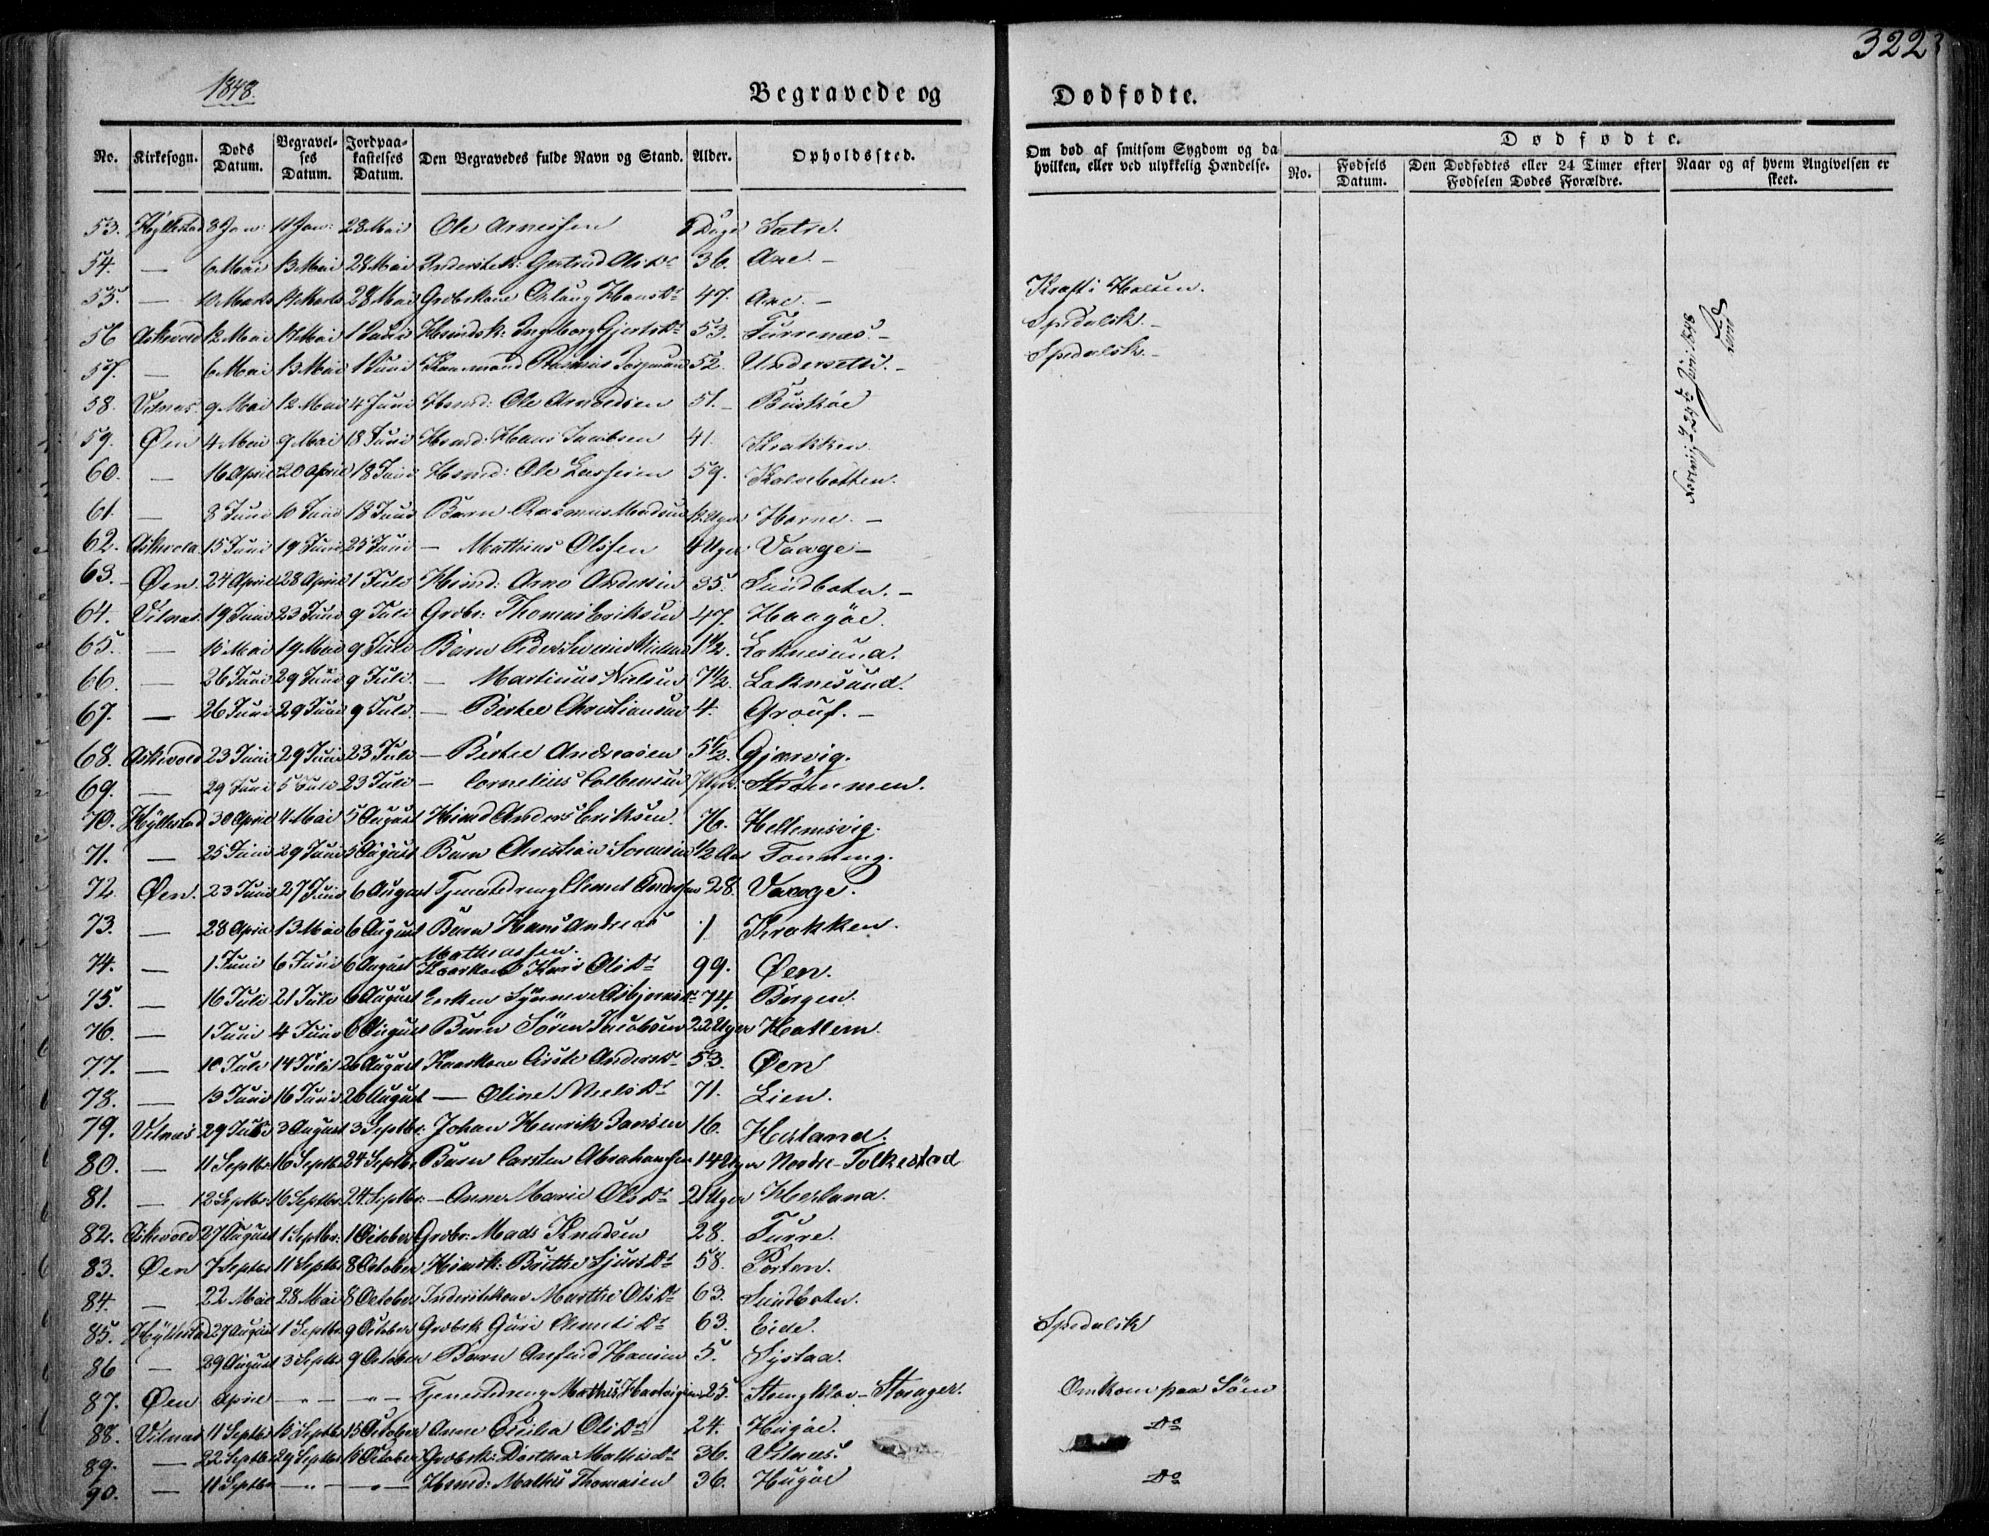 322
1848.
Begravede og Dødfødte.
No. Kirkesogn. Døds Datum. Begravelses Datum. Jordpaakastelses Datum. Den Begravedes fulde Navn og Stand. Alder. Opholdssted.
Om død af smitsom Sygdom og da hvilken, eller ved ulykkelig Hændelse.
Dødfødte.
No. Fødsels Datum. Den Dødfødtes eller 24 Timer efter Fødselen Dødes Forældre. Naar og af hvem Angivelsen er skeet.
53. Hyllestad 8 Jan: 11 Jan: 28 Mai Ole Arnessen Dage Sætre.
54. — 6 Mai 13 Mai 28 Mai Inderstek: Gertrud Olsdr 36. Aae. —
55. — 10 Marts 14 Marts 28 Mai Grdbrkone Hansdr 47. Aae. — Kræft i Halsen.
56 Askevold 12 Mai 17 Mai 1 Juni Huusmdsk: Ingeborg Gjertsdr 53. Furrenæs. — Spedalsk. —
57. — 6 Mai 13 Mai 1 Juni Kaarmand Rasmus 52. Undersæth. — Spedalsk —
58. Vilnæs 9 Mai 12 Mai 4 Juni Husmd: Ole Arnoldsen 51. — Buskøe
59. Øen 4 Mai 9 Mai 18 Juni Husmd: Hans Jacobsen 41. Krakken
60. — 16 April 20 April 18 Juni Husmd: Ole Lassesen 59. Kalvebotten.
61. — 8 Juni 10 Juni 18 Juni Barn Rasmus Madsen Uger Horne. —
62. Askevold 15 Juni 19 Juni 25 Juni — Mathias Olssen 4 Uger Vaage —
63. — Øen 24 April 28 April 1 Juli Husmd: Arne Andersen 35. Sundbotn. —
64. Vilnæs 19 Juni 23 Juni 9 Juli Grdbr: Thomas Eriksen 47. Haagøe.
65. — 15 Mai 19 Mai 9 Juli Barn Peder Severin Nielsen 1½. Laknesund.
66. — 26 Juni 29 Juni 9 Juli. — Martinus Nielsen 7½. Laknesund.
67. — 26 Juni 29 Juni 9 Juli — Bertel Christiansen 4. Grouf. —
68. Askevold 23 Juni 29 Juni 23 Juli — Bertel Andreasen 5½. Gjærvig.
69. — 29 Juni 5 Juli 23 Juli — Cornelius Colbensen 7 Uger. Strømmen.
70. Hyllestad 30 April 4 Mai 5 August Husmd Anders Eriksen 76. Hellemsvig.
71. — 25 Juni 29 Juni 5 August Barn Christian Sørensen ½ Aar Tonning.
72. Øen. 23 Juni 27 Juni 6 August Tjenestedreng Clemet Andersen 28. Vaage.
73. — 28 April 13 Mai 6 August Barn Hans Andreas Mathiassen. 1 Krakken.
74. — 1 Juni 6 Juni 6 August Kaarkone Kari Olsdr 99. Øen.
75. — 16 Juli 21 Juli 6 August Enken Synneve Asbjørnsdr 74. Børgen.
76. — 1 Juni 4 Juni 6 August Barn Søren Jacobsen 22 Uger Hatlem.
77. — 10 Juli 14 Juli 26 August Kaarkone Andersdr 53. Øen
78. — 13 Juni 16 Juni 26 August — Oline Nielsdr 71. Lien.
79. Vilnæs 29 Juli 3 August 3 Septbr: Johan Henrik Jansen 16. Hesland.
80. — 11 Septbr 16 Septbr 24 Septbr. Barn Carsten Abrahamsen 14 Uger Nordre-Folkestad
81. — 12 Septbr. 16 Septbr 24 Septbr: — Anne Marie Olsdr 2 Uger Hesland.
82. Askevold 27 August 1 Septbr: 1 October Grdbr: Mads Knudsen 28. Furre.
83. Øen 7 Septbr 11 Septbr 8 October Husmdsk: Birthe Sjursdr 58. Porten.
84. — 22 Mai 28 Mai 8 October Inderstkone Marthe Olsdr 63. Sundbotn.
85. Hyllestad 27 August 1 Septbr 9 October Grdbrsk Guri Clemetsdr 63. Eide. Spedalsk
86 — 29 August 3 Septbr 9 October Barn Anfind Hansen 5. Systaa.
87. Øen April — „ — — „ — Tjenestedreng Mathis Hartvigsen 25. Strengklev — Stavager. Omkom paa Søen
88. Vilnæs 11 Septbr 15 Septbr 15 October Anne Cecilia Olsdr 24. Hugøe. Do
89. — 22 Septbr 29 Septbr 15 October Grdbrsk: Dorthea Mathisdr 36. Vilnæs.
90. — 11 Septbr — „ — — „ — Husmd: Mathis Thomasen 36. Hugøe Do
Juni 1848
Lund